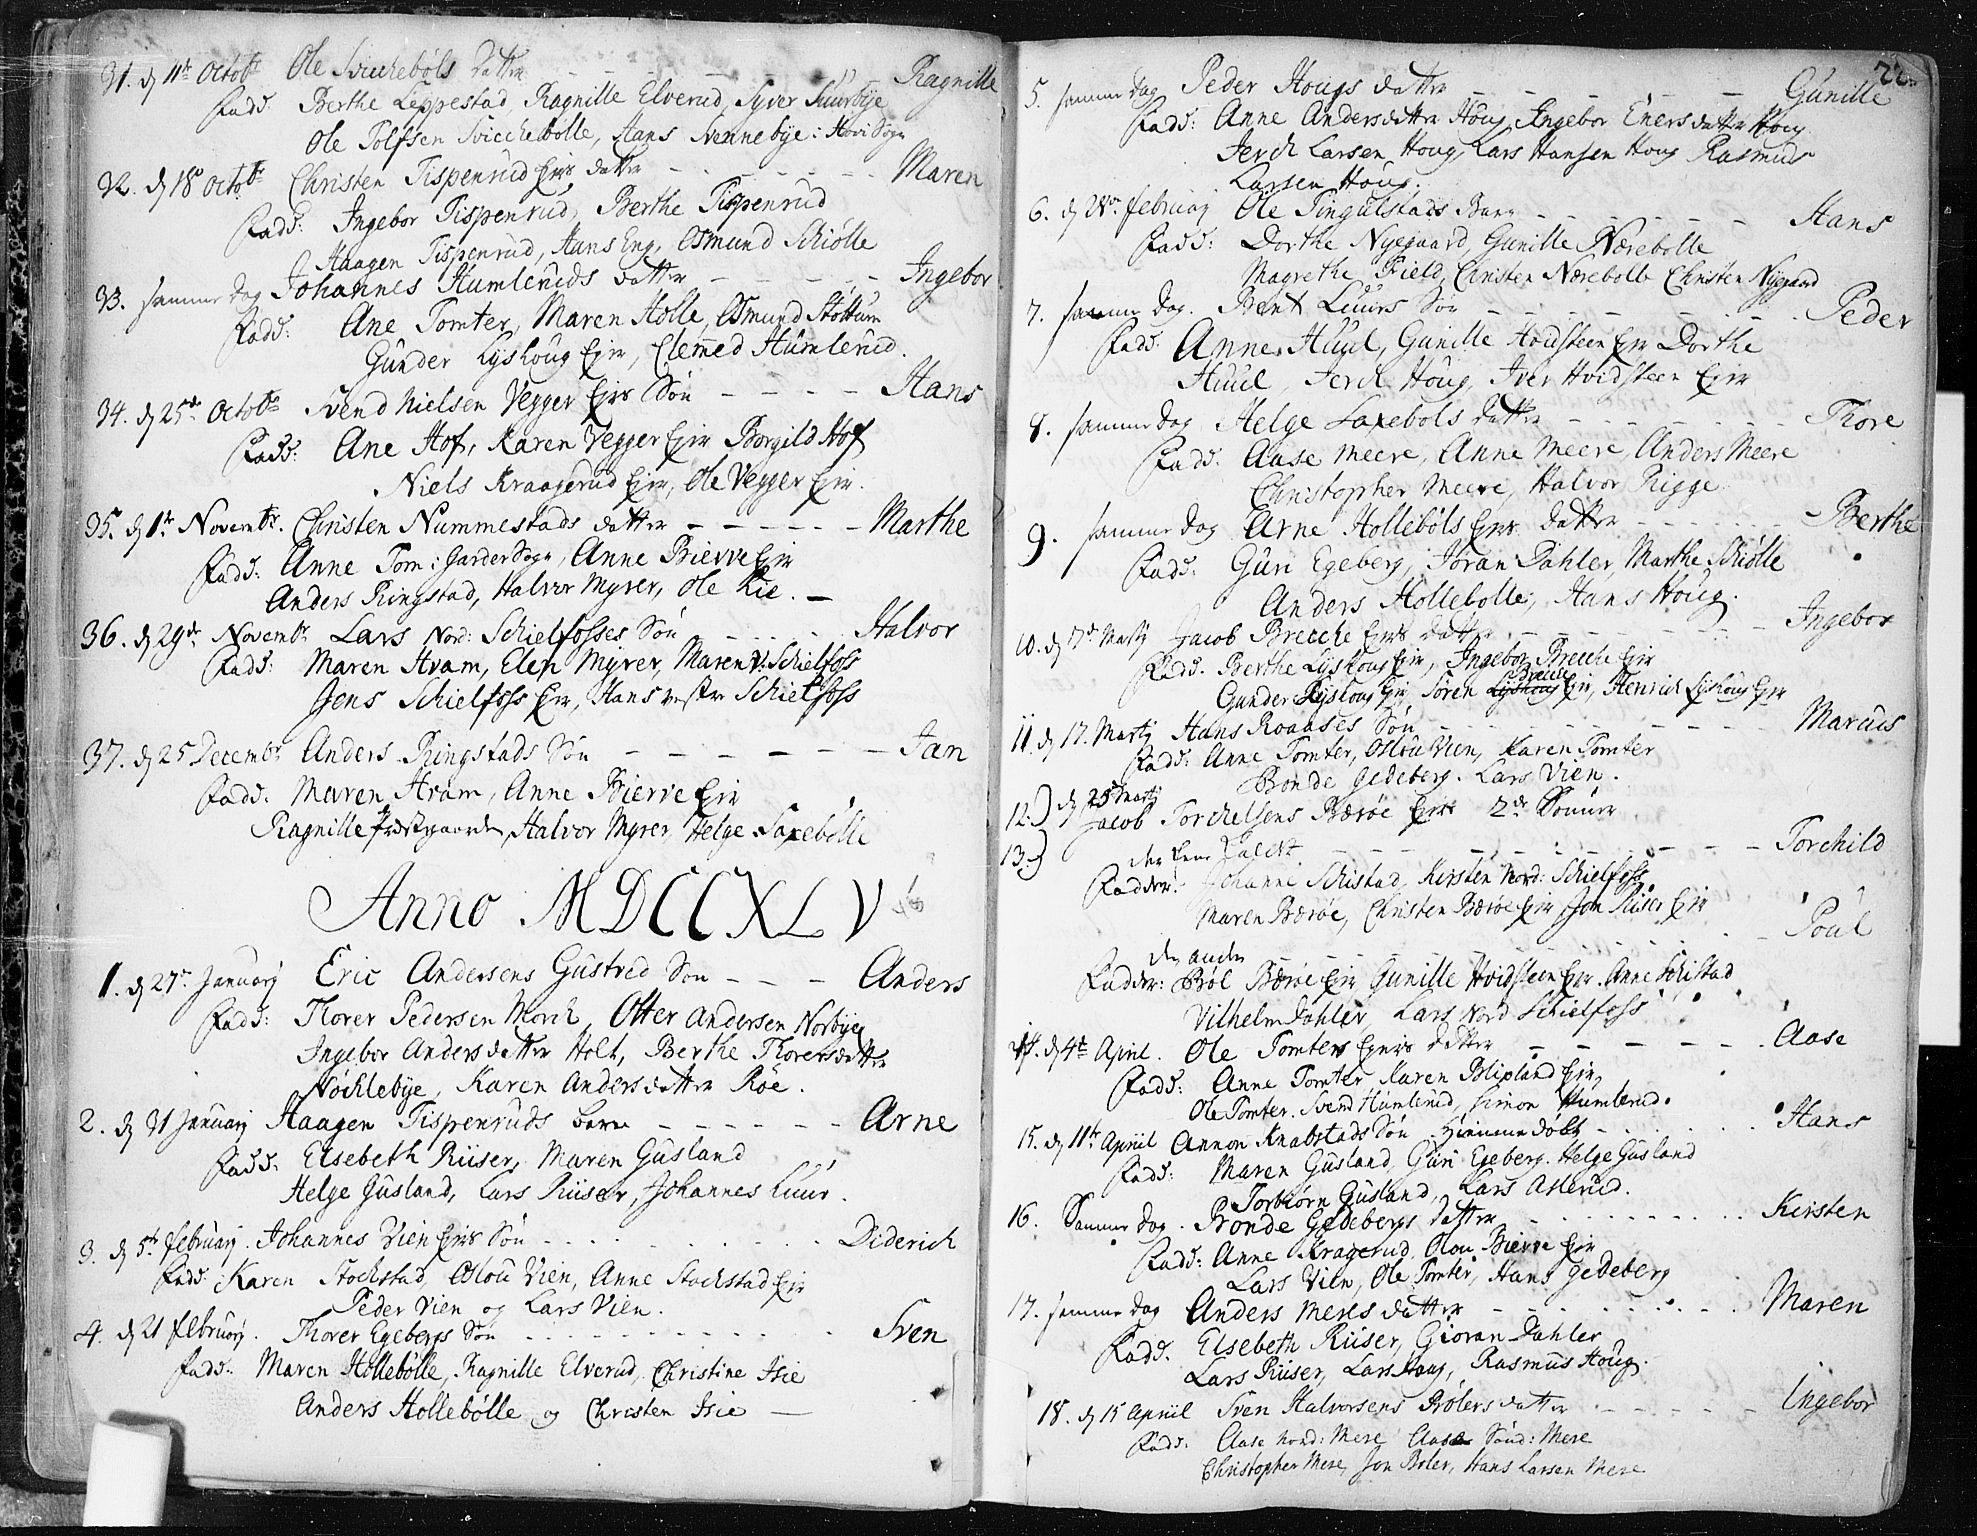 31. d 11te Octobr Ole Svicchebøls datter - - - - Ragnille
Fadd. Berthe Leppestad, Ragnille Elverud, Syver Sunbye
Ole Tolfsen Svicchebølle, Hans Svennebye i Hovi Sogn
32. d 18de Octobr Christen Tispenrud Ejers datter - - - - Maren
Fadd: Ingebor Tispenrud, Berthe Tispenrud
Haagen Tispenrud, Hans Eng, Osmund Schiølle
33. samme dag Johannes Humleruds datter - - - - Ingebor
Fadd: Ane Tomter, Maren Holle, Osmund Stottum
Gunder Lyshoug Ejer, Clemmed Humlerud.
34. d 25de Octobr Svend Nielsen Vegger Ejers Søn - - - - Hans
Fadd: Ane Hof, Karen Vegger Ejer Borgild Hof
Niels Kraagerud Ejer, Ole Vegger Ejer.
35. d 1te Novembr. Christen Nummestads datter - - - - - Marthe
Fadd: Anne Tom i Garder Sogn, Anne Bierve Ejer
Anders Ringstad, Halvor Myrer, Ole Lie. -
36. d 29de Novembr Lars Nord: Schielfosses Søn - - - Halvor
Fadd: Maren Hvam, Elen Myrer, Maren V. Schielfoss
Jens Schielfoss Ejer, Hans vestre Schielfoss
37. d 25 Decembr Anders Ringstads Søn - - - - - - Jan
Fadd. Maren Hvam, Anne Bierve Ejer
Ragnille Præstgaarden, Halvor Myrer, Helge Saxebølle
Anno MDCCXLV
1. d 27de January Eric Andersens Gustved Søn - - - Anders
Fadd: Thorer Pedersen Morch, Otter Andersen Norbye
Ingebor Andersdatter Holt, Berthe Thorersdatter
Nøchlebye, Karen Andersdatter Røe.
2. d 31 January Haagen Tispenruds barn - - - - - - Arne
Fadd: Elsebeth Riiser, Maren Gusland
Helge Gusland, Lars Riiser, Johannes Luur.
3. d 5te february. Johannes Vien Ejers Søn - - - - - - Diderich
Fadd: Karen Stochstad, Oslou Vien, Anne Stochstad Ejer
Peder Vien og Lars Vien.
4. d 21 february. Thorer Egebergs Søn - - - - - - Sven
Fadd. Maren Hollebølle, Ragnille Elverud, Christine Isie
Anders Hollebølle og Christen Isie -
22.
5. samme dag Peder Hougs datter - - - - - - Gunille
Fadd: Anne Andersdatter Houg, Ingebor Enersdatter Houg
Jerch Larsen Houg, Lars Hansen Houg Rasmus
Larsen Houg.
6. d 28de february Ole Tingulstads Barn - - - - - - Hans
Fadd: Dorthe Nygaard, Gunille Nærebolle
Magrethe Field, Christen Nærebolle Christen Nygaard
7. samme dag. Bent Luurs Søn - - - - - - Peder
Fadd: Anne Huul, Gunille Hvidsteen Ejer Dorthe
Huul, Jerch Houg, Iver Hvidsteen Ejer
8. samme dag Helge Saxebols datter - - - - - - Thore
Fadd. Aase Meere, Anne Meere, Anders Meere
Christopher Meere, Halvor Rigge
9. samme dag Arne Hollebøls Ejers datter - - - - - Berthe
Fadd. Guri Egeberg, Joran Dahler, Marthe Schiølle
Anders Hollebolle, Hans Houg.
10. d 7de Marty Jacob Brecche Ejers datter - - - - - - Ingebor
Fadd. Berthe Lyshoug Ejer, Ingebor Brecche Ejer
Gunder Lyshoug Ejer, Søren Brecche Ejer, Henrich Lyshoug Ejer
11. d 17. Marty Hans Roaases Søn - - - - - - Marcus
Fadd: Anne Tomter, Oslou Vien, Karen Tomter
Bronde Gedeberg. Lars Vien.
12.) d 25de Marty
Jacob Torchelsens Bærøe Ejers 2de Sønner
13.) den eene kaldt - - - - - - Torchild
Fadder: Johanne Schistad, Kirsten Nord: Schielfoss
Maren Bærøe, Christen Bærøe Ejer Jon Riiser Ejer
den anden - - - - - - Poul
Fadder: Bøl Bærøe Ejer Gunille Hvidsteen Ejer. Anne Schistad
Vilhelm Dahler, Lars Nord Schielfoss
14. d 4te April. Ole Tomters Ejers datter - - - - - - Aase
Fadd: Anne Tomter, Karen Blixland Ejer,
Ole Tomter. Svend Humlerud, Simon Humlerud.
15. d 11te April Annon Knabstads Søn Hiemmedøbt - - - - Hans
Fadd: Maren Gusland, Guri Egeberg. Helge Gusland
Torbiørn Gusland, Lars Asterud.
16. Samme dag. Bronde Gedebergs datter - - - - - - Kirsten
Fadd: Anne Kragerud, Olou Bierve Ejer
Lars Vien, Ole Tomter, Hans Gedeberg
17. samme dag Anders Meres datter - - - - - - Maren
Fadd. Elsebeth Riiser, Gioran Dahler
Lars Riiser, Lars Houg, Rasmus Houg.
18. d 15 April Sven Halvorsens Brølers datter - - - - - Ingebor
Fadd: Aase Nord: Mere Aase Sønd: Mere
Christopher Mere, Jon Broler, Hans Larsen Mere